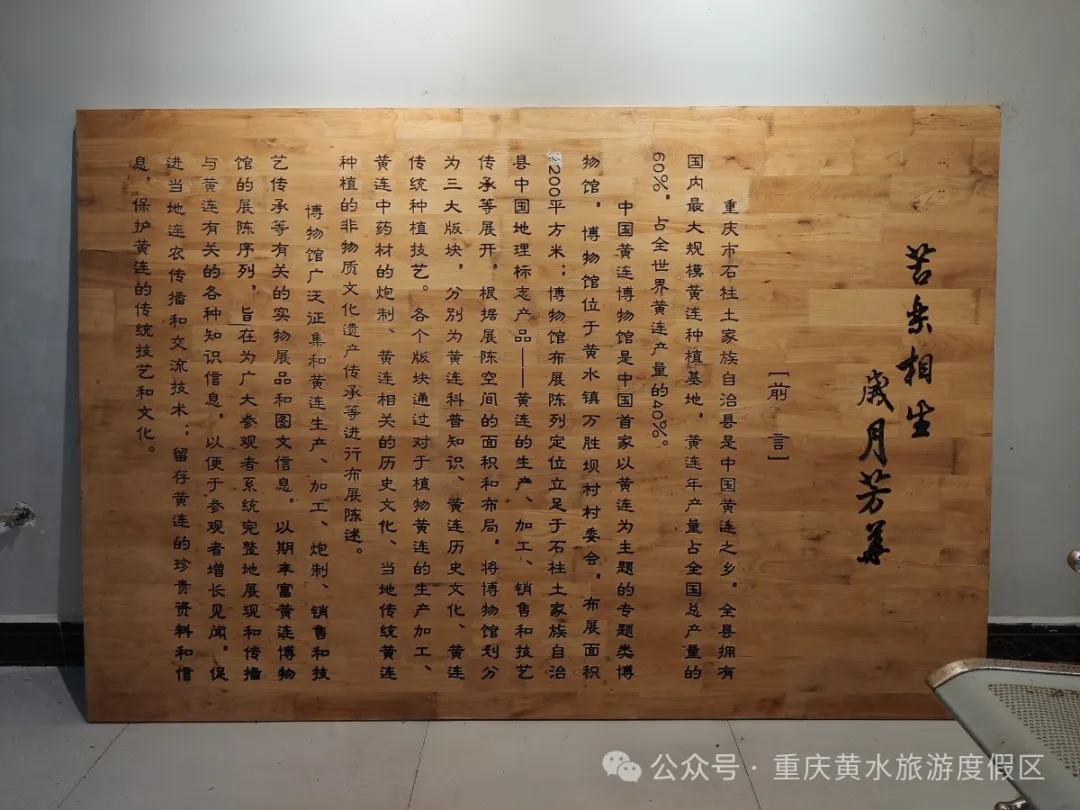 苦乐相生
歲月芳華
[前言]
重庆市石柱土家族自治县是中国黄连之乡，全县拥有
国内最大规模黄连种植基地，黄连年产量占全国总产量的
60%，占全世界黄连产量的40%。
中国黄连博物馆是中国首家以黄连为主题的专题类博
物馆，博物馆位于黄水镇万胜坝村村委会，布展面积
200平方米；博物馆布展陈列定位立足于石柱土家族自治
县中国地理标志产品——黄连的生产、加工、销售和技艺
传承等展开，根据展陈空间的面积和布局，将博物馆划分
为三大版块，分别为黄连科普知识、黄连历史文化、黄连
传统种植技艺。各个版块通过对于植物黄连的生产加工、
黄连中药材的炮制、黄连相关的历史文化、当地传统黄连
种植的非物质文化遗产传承等进行布展陈述。
博物馆广泛征集和黄连生产、加工、炮制、销售和技
艺传承等有关的实物展品和图文信息，以期丰富黄连博物
馆的展陈序列，旨在为广大参观者系统完整地展现和传播
与黄连有关的各种知识信息，以便于参观者增长见闻，促
进当地连农传播和交流技术；留存黄连的珍贵资料和信
息，保护黄连的传统技艺和文化。
公众号·重庆黄水旅游度假区